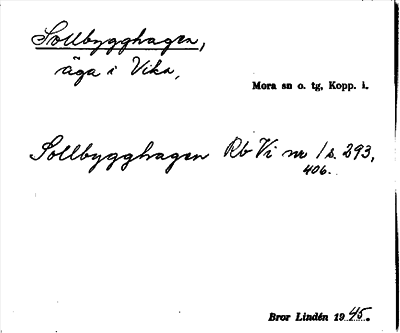 Sollbygghagen,
äga i Vika,
Mora sn o. tg, Kopp. l.
Sollbygghagen Rb Vi nr 1 s. 293,
406.
Bror Lindén 1945.